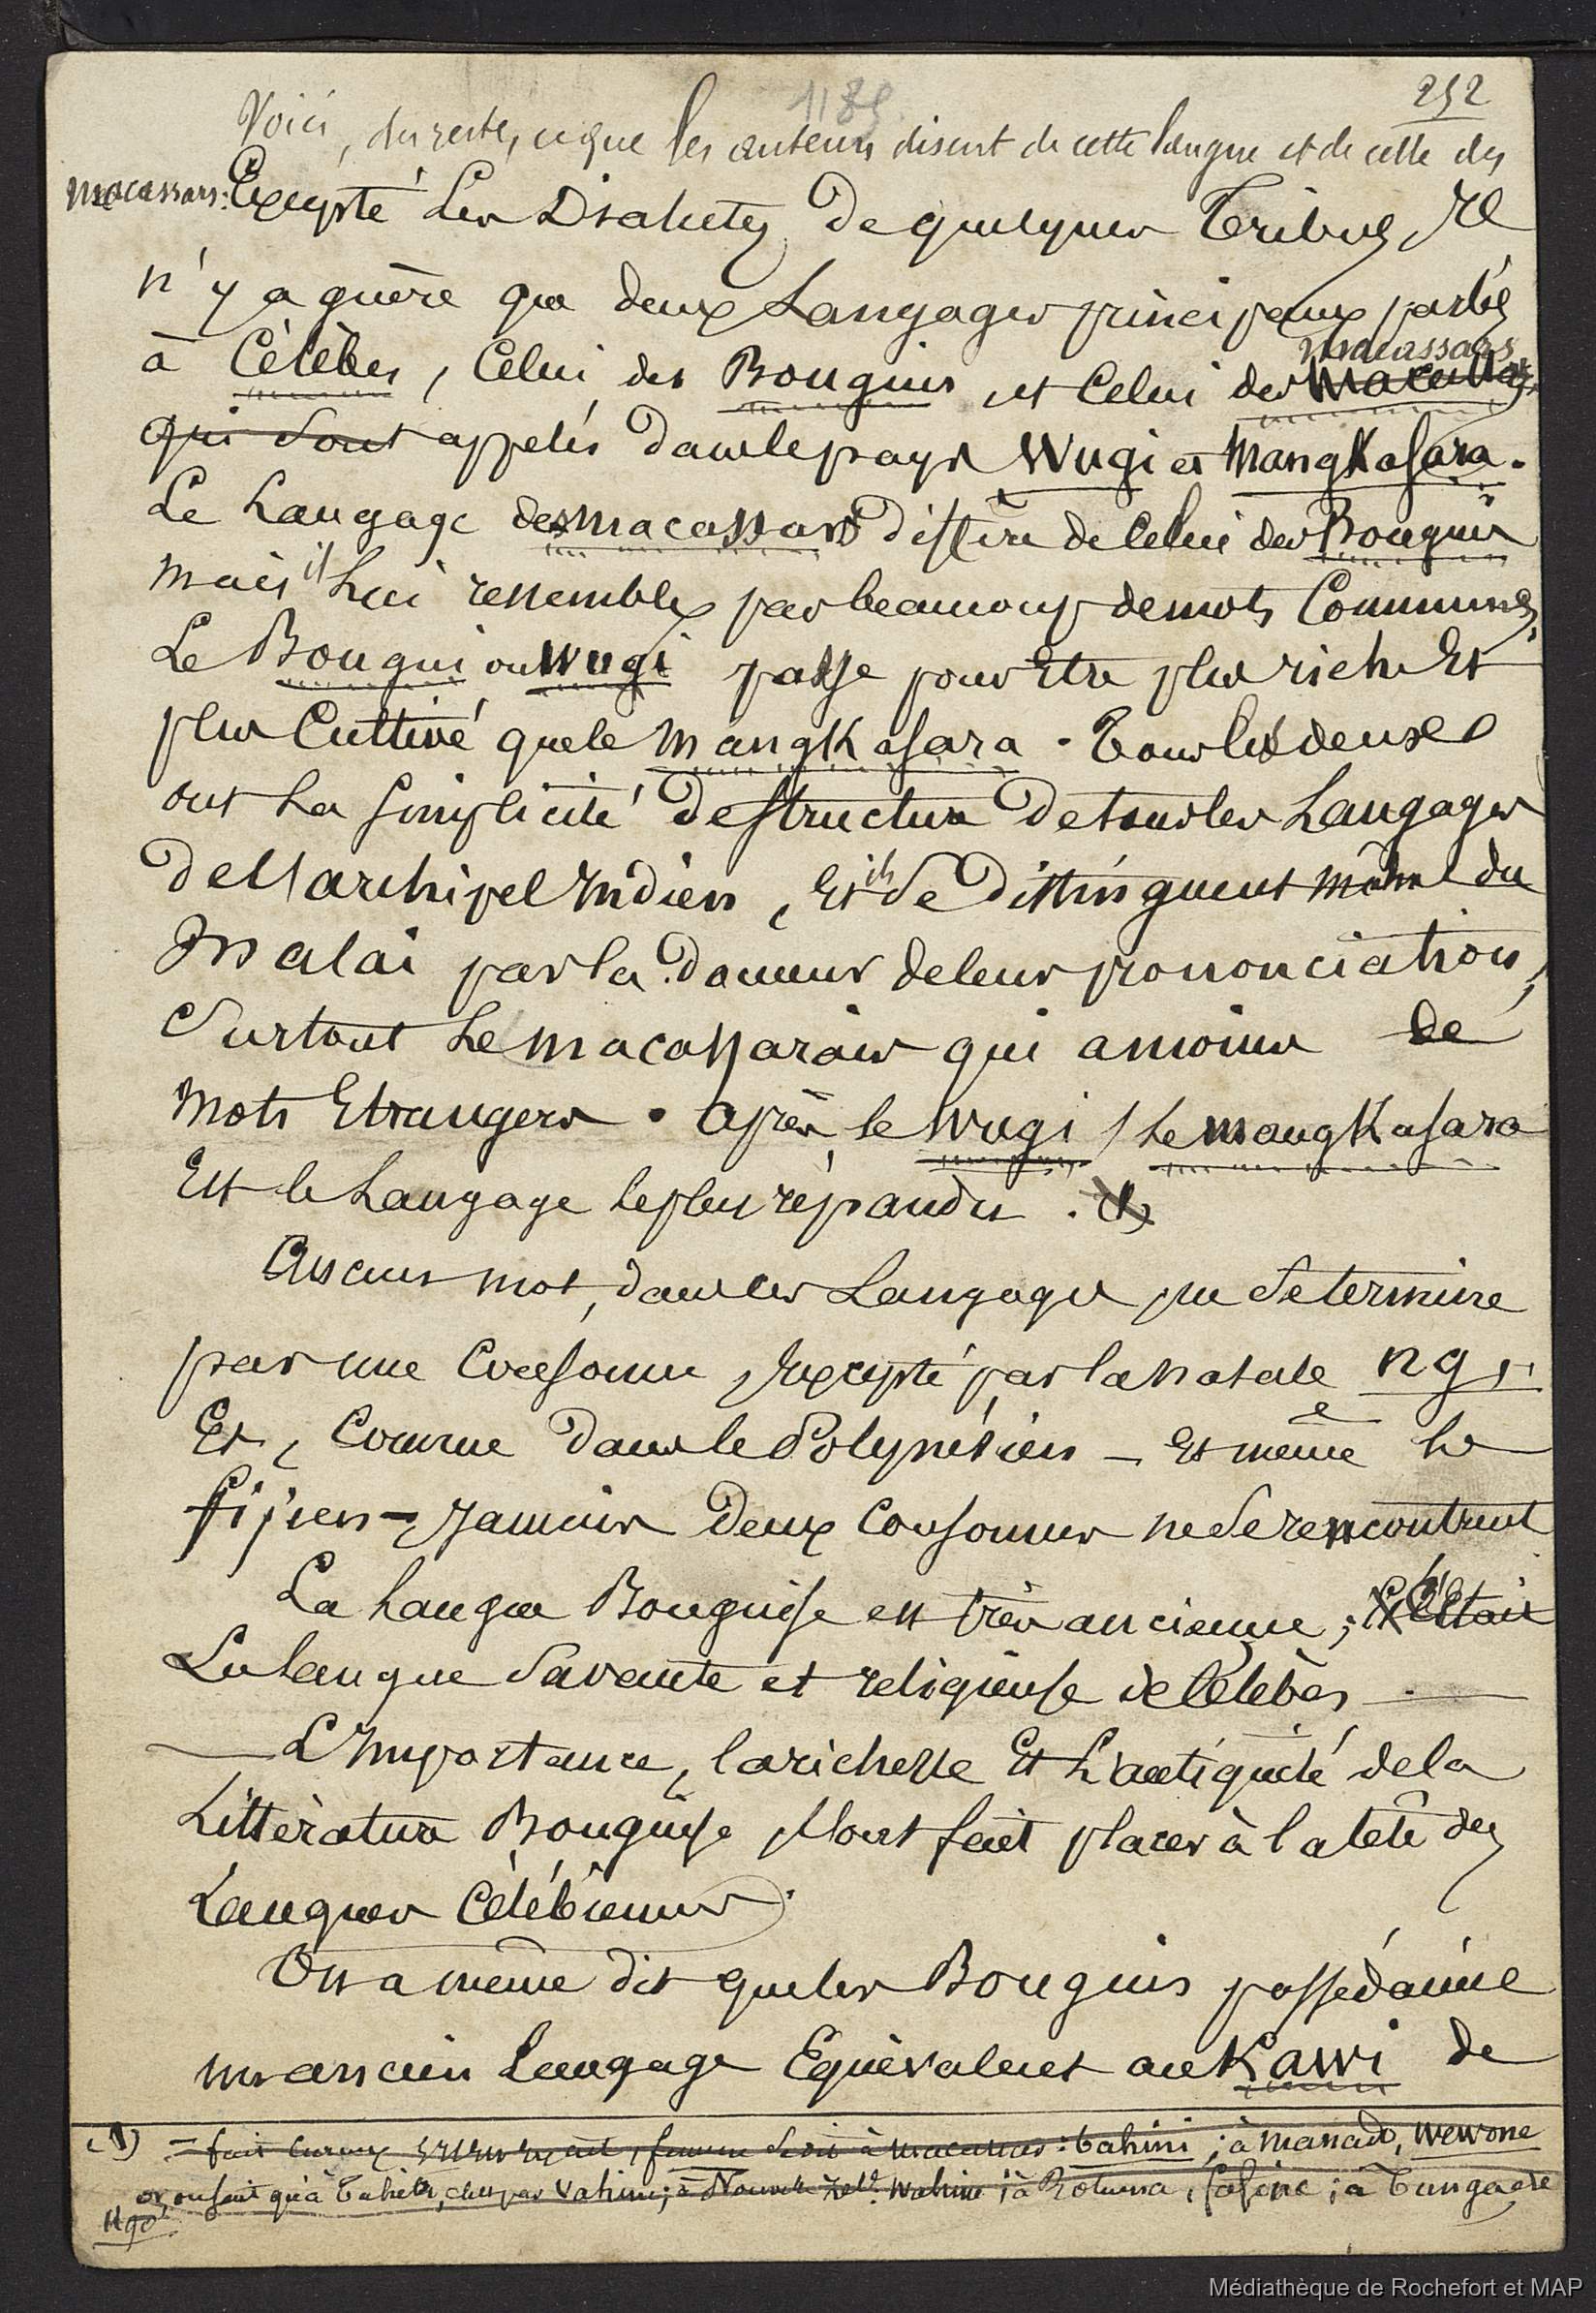 1185
252
Voici, du reste, ce que les auteurs disent de cette langue et de celle des
Macassars: Excepté Les Dialectes de quelques Tribus, Il
n'y a guère que deux Langages principaux parlés
à Célèbes, Celui des Bouguis et Celui des Macassars
qui sont appelés dans le pays Wugi et Mangkasara.
Le Langage des macassars diffère de Celui des Bouguis
mais il Lui ressemble par beaucoup de mots Communs.
Le Bougui ou Wugi passe pour Etre plus riche Et
plus Cultivé que le Mangkasara. Tous les deux
ont La simplicité de structure de tous les Langages
de l'archipel Indien, Et ils se distinguent même du
Malai par la douceur de leur prononciation,
Surtout Le macassarais qui a moins de
Mots Etrangers. Après le Wugi, Le mangkasara
Est le Langage le plus répandu.
Aucun mot, dans ces Langages, ne se termine
par une Consonne, Excepté par la nasale ng,
Et, Comme dans le Polynésien - Et même le
fijien - Jamais deux Consonnes ne se rencontrent
La Langue Bouguise est très ancienne; C'Etait
La langue Savante et religieuse de Célèbes.
L'Importance, la richesse Et L'antiquité de la
Littérature Bouguise, L'ont fait placer à la tête des
Langues Célébiennes.
On a même dit que les Bouguis possédaient
un ancien Langage Equivalent au Kawi de
(1) = fait curieux femme se dit à macassar: bahini; à Manado, wewone
or, on sait qu'à Tahiti, c'est par Vahine; à Nouvelle Zelde Wahine; à Rotuma, fafine; à Tunga de